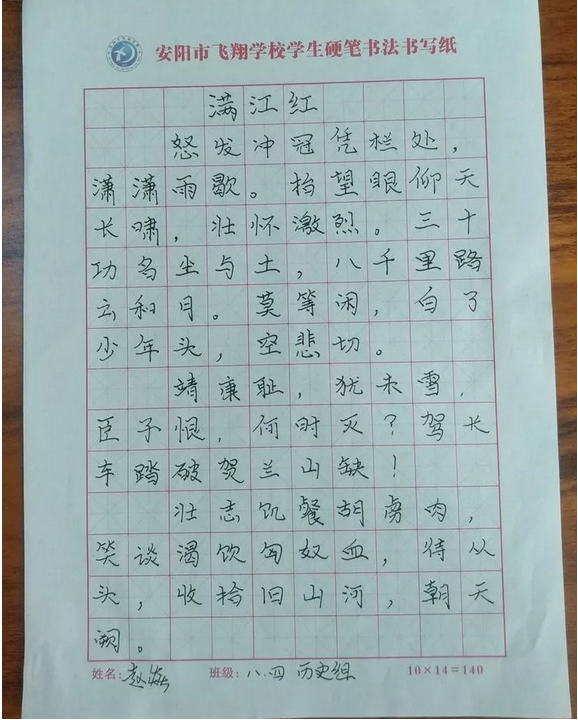 安阳市飞翔学校学生硬笔书法书写纸
满江红
怒发冲冠凭栏处，
潇潇雨歇。抬望眼仰天
长啸，壮怀激烈。三十
功名尘与土，八千里路
云和月。莫等闲，白了
少年头，空悲切。
靖康耻，犹未雪，
臣子恨，何时灭？驾长
车踏破贺兰山缺！
壮志饥餐胡虏肉，
笑谈渴饮匈奴血，待从
头，收拾旧山河，朝天
阙。
姓名：赵 班级：八.四 历史组 10×14=140